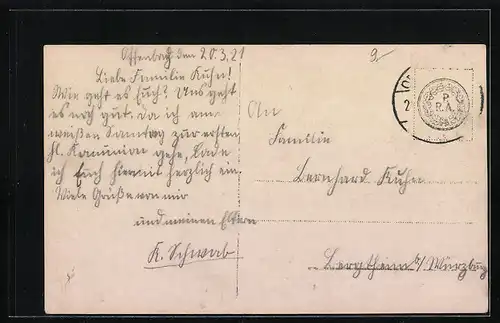 Offenbach den 20.3.21
Liebe Familie Kuhn!
Wie geht es Euch? Uns geht
es noch gut. Da ich am
weißen Sonntag zur ersten
hl. Komunion gehe, lade
ich Euch hiermit herzlich ein.
Viele Grüße von mir
und meinen Eltern
K. Schwab
9-
P.
R.A.
An
Familie
Bernhard Kuhn
Bergtheim b/ Würzburg